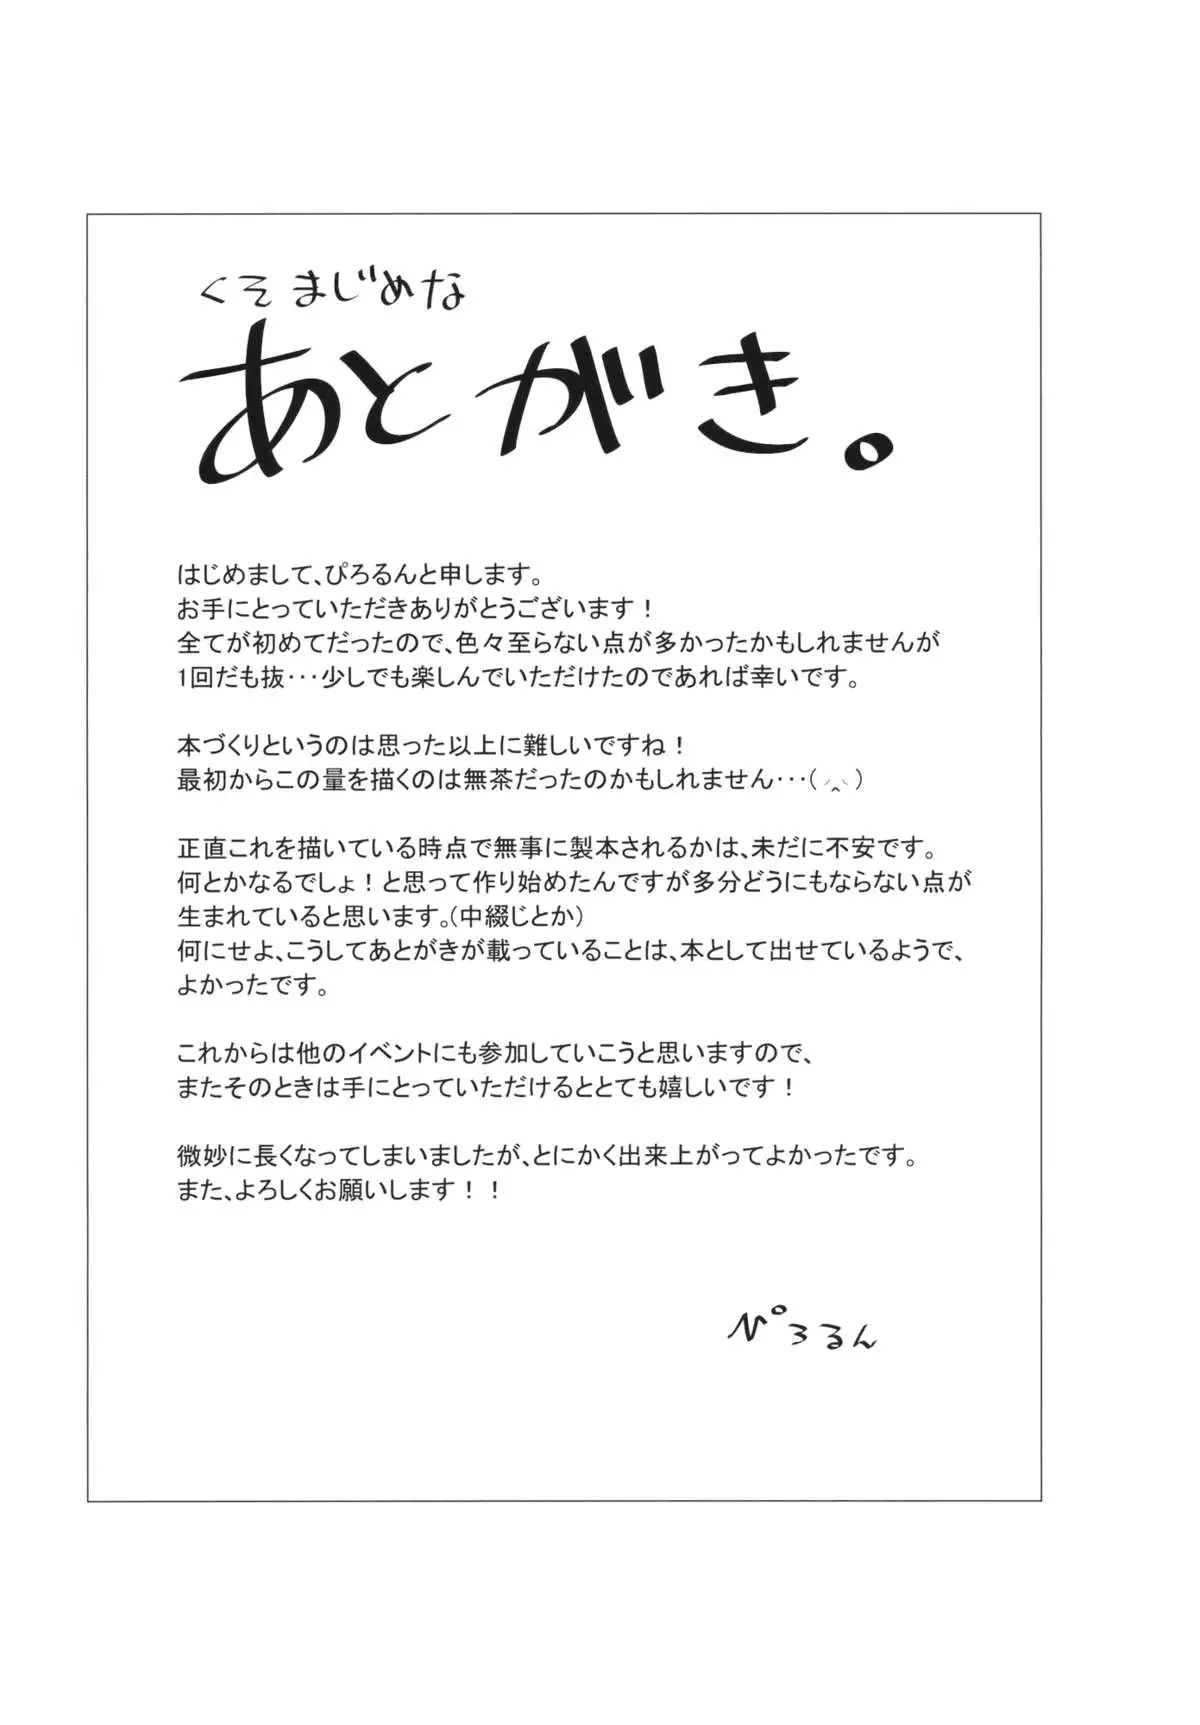 くそまじめな
あとがき。
はじめまして、ぴろるんと申します。
お手にとっていただきありがとうございます！
全てが初めてだったので、色々至らない点が多かったかもしれませんが
1回だも抜･･･少しでも楽しんでいただけたのであれば幸いです。
本づくりというのは思った以上に難しいですね！
最初からこの量を描くのは無茶だったのかもしれません･･･( ◞‸◟ )
正直これを描いている時点で無事に製本されるかは、未だに不安です。
何とかなるでしょ！と思って作り始めたんですが多分どうにもならない点が
生まれていると思います。(中綴じとか)
何にせよ、こうしてあとがきが載っていることは、本として出せているようで、
よかったです。
これからは他のイベントにも参加していこうと思いますので、
またそのときは手にとっていただけるととても嬉しいです！
微妙に長くなってしまいましたが、とにかく出来上がってよかったです。
また、よろしくお願いします！！
ぴろるん